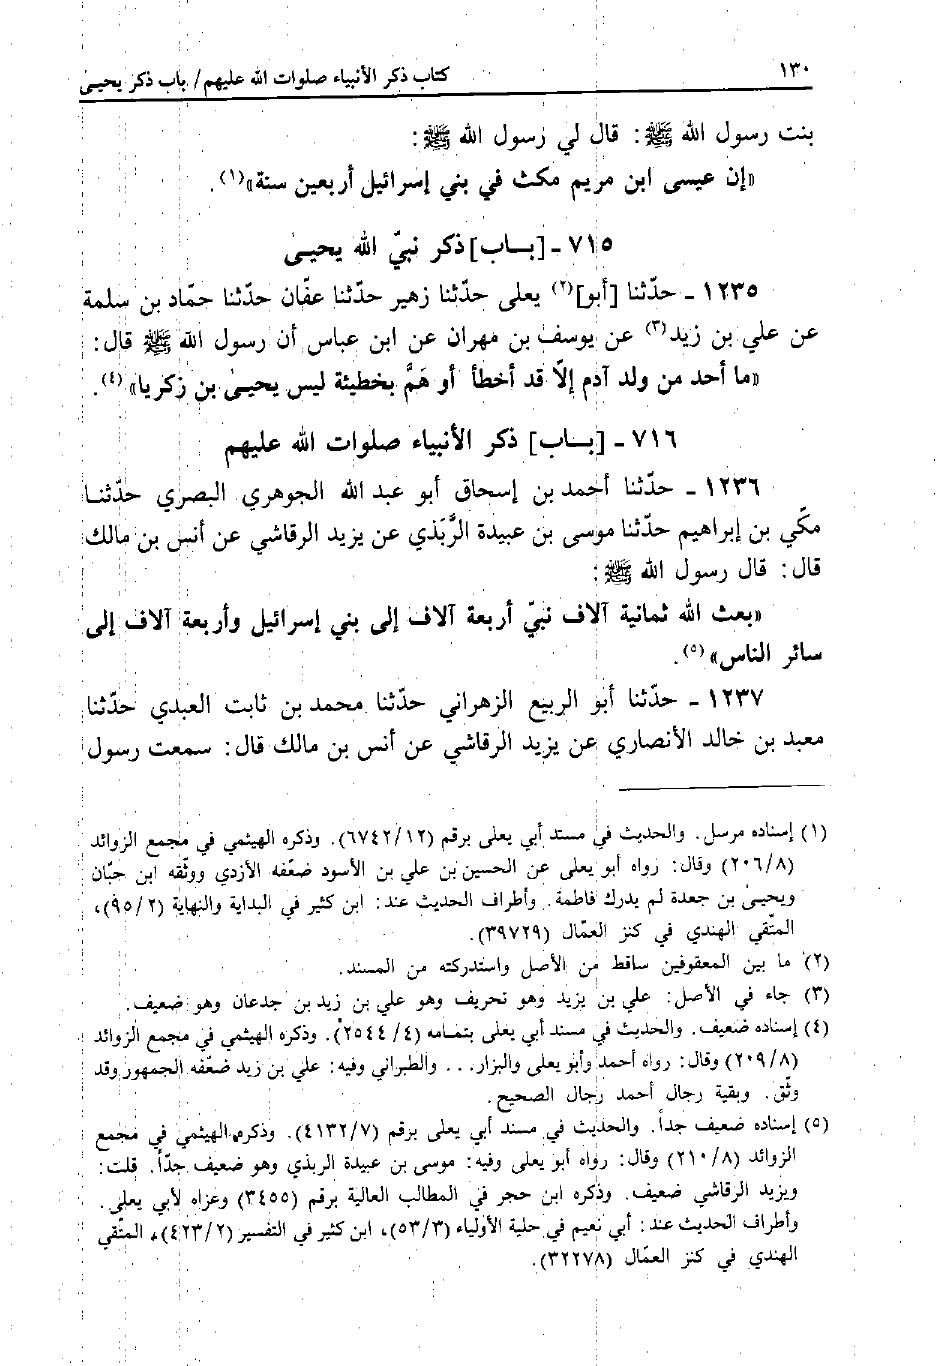 ١٣٠
كتاب ذكر الأنبياء صلوات الله عليهم/ باب ذكر يحيىٰ
بنت رسول الله ﷺ: قال لي رسول الله ﷺ:
«إن عيسى ابن مريم مكث في بني إسرائيل أربعين سنة»(١).
٧١٥ - [بـاب] ذكر نبيّ الله يحيـى
١٢٣٥ - حدّثنا [أبو](٢) يعلى حدّثنا زهير حدّثنا عفّان حدّثنا حمّاد بن سلمة
عن علي بن زيد(٣) عن يوسف بن مهران عن ابن عباس أن رسول الله ﷺ قال:
«ما أحد من ولد آدم إلاّ قد أخطأ أو هَمَّ بخطيئة ليس يحيىٰ بن زكريا»(٤).
٧١٦ - [بـاب] ذكر الأنبياء صلوات الله عليهم
١٢٣٦ - حدّثنا أحمد بن إسحاق أبو عبد الله الجوهري البصري حدّثنـا
مكّي بن إبراهيم حدّثنا موسى بن عبيدة الرَّبَذي عن يزيد الرقاشي عن أنس بن مالك
قال: قال رسول الله ﷺ:
«بعث الله ثمانية آلاف نبيّ أربعة آلاف إلى بني إسرائيل وأربعة آلاف إلى
سائر الناس»(٥).
١٢٣٧ - حدّثنا أبو الربيع الزهراني حدّثنا محمد بن ثابت العبدي حدّثنا
معبد بن خالد الأنصاري عن يزيد الرقاشي عن أنس بن مالك قال: سمعت رسول
(١) إسناده مرسل. والحديث في مسند أبي يعلى برقم (٦٧٤٢/١٢). وذكره الهيثمي في مجمع الزوائد
(٢٠٦/٨) وقال: رواه أبو يعلى عن الحسين بن علي بن الأسود ضعّفه الأزدي ووثّقه ابن حبّان
ويحيىٰ بن جعدة لم يدرك فاطمة. وأطراف الحديث عند: ابن كثير في البداية والنهاية (٩٥/٢)،
المتّقي الهندي في كنز العمّال (٣٩٧٢٩).
(٢) ما بين المعقوفين ساقط من الأصل واستدركته من المسند.
(٣) جاء في الأصل: علي بن يزيد وهو تحريف وهو علي بن زيد بن جدعان وهو ضعيف.
(٤) إسناده ضعيف. والحديث في مسند أبي يعلى بتمامه (٢٥٤٤/٤). وذكره الهيثمي في مجمع الزوائد
(٢٠٩/٨) وقال: رواه أحمد وأبو يعلى والبزار... والطبراني وفيه: علي بن زيد ضعّفه الجمهور وقد
وثّق. وبقية رجال أحمد رجال الصحيح.
(٥) إسناده ضعيف جداً. والحديث في مسند أبي يعلى برقم (٤١٣٢/٧). وذكره الهيثمي في مجمع
الزوائد (٢١٠/٨) وقال: رواه أبو يعلى وفيه: موسى بن عبيدة الربذي وهو ضعيف جدّاً. قلت:
ويزيد الرقاشي ضعيف. وذكره ابن حجر في المطالب العالية برقم (٣٤٥٥) وعزاه لأبي يعلى.
وأطراف الحديث عند: أبي نعيم في حلية الأولياء (٥٣/٣)، ابن كثير في التفسير (٤٢٣/٢)، المتّقي
الهندي في كنز العمّال (٣٢٢٧٨).